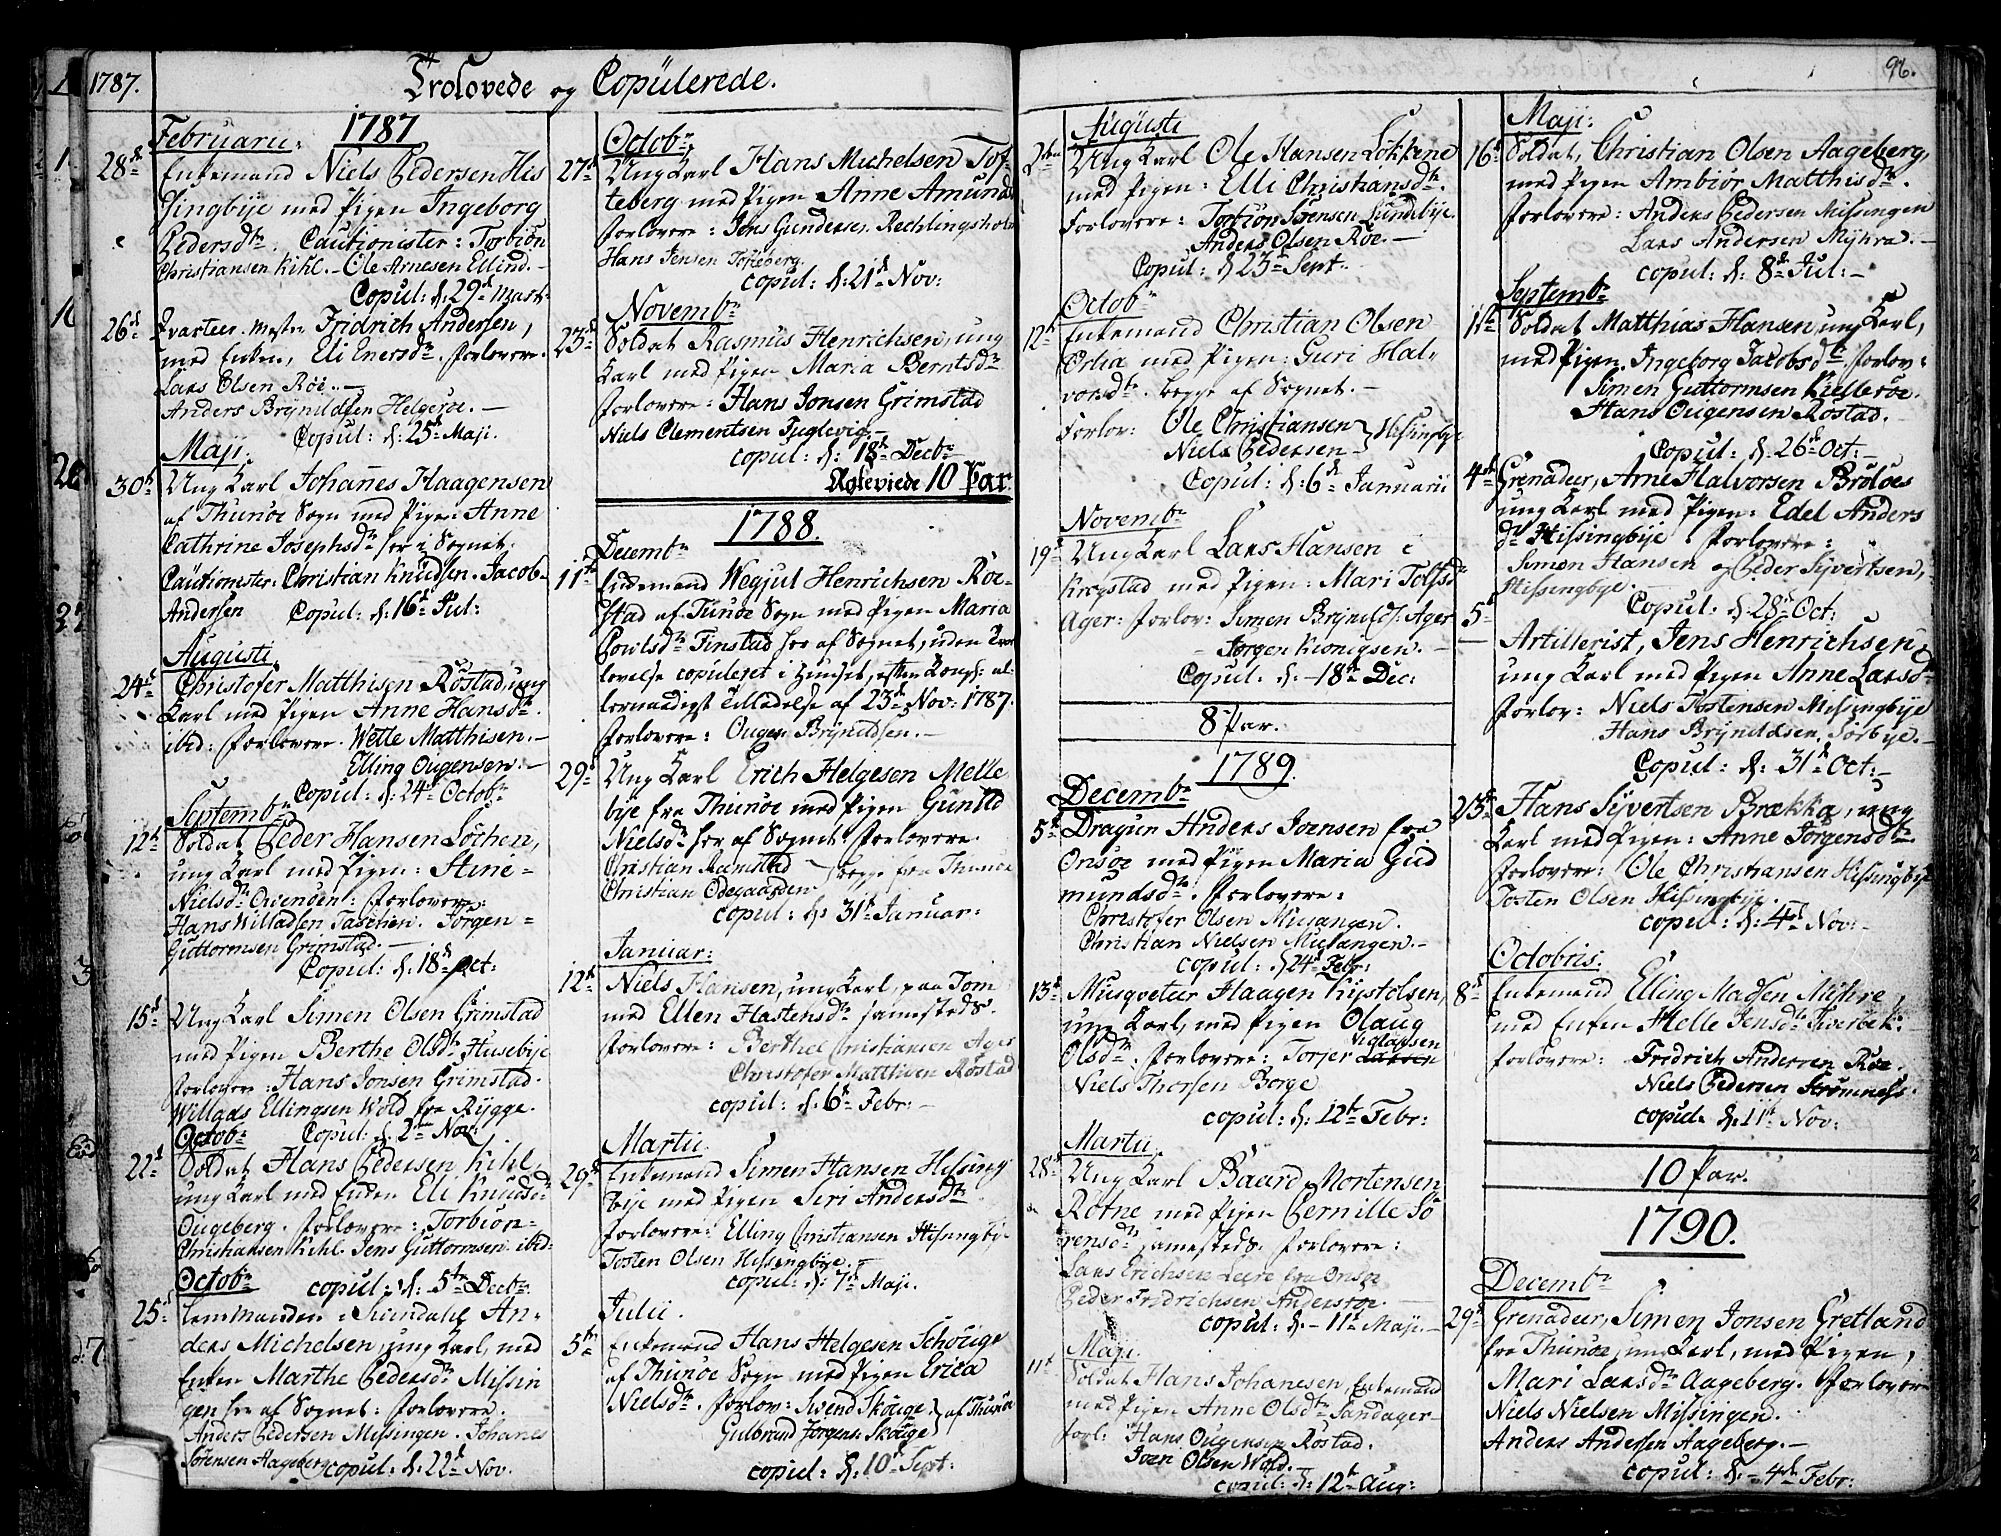 1787.
Trolovede og Copülerede.
96.
Februarii: 1787
28de Enkemand Niels Pedersen His
singbÿe med Pigen Ingeborg
Pedersdtr. Cautionister: Torbiön
Christiansen Kihl. Ole Arnesen Ellind.
Copul: d: 29de Mart:
26de Qvarteer-Mester Fridrich Andersen,
med Enken, Eli Enersdtr. Forlovere.
Lars Olsen Röe.
Anders Brÿnildsen Helgeröe.
Copul: d: 25de Maji.
Maji.
30te Ung Karl Johañes Haagensen
af Thunöe Sogn med Pigen Anne
Cathrine Josephsdtr her i Sognet.
Caütionister: Christian Knüdsen. Jacob
Andersen Copul: d: 16de Jul:
Augusti.
24de Christofer Matthisen Röstad, ung
Karl med Pigen Anne Hansdtr.
ibid: Forlovere. Wette Matthisen.
Elling Ougensen.
Copul: d: 24de Octobr
Septembr
12te Soldat Peder Hansen Löchen,
ung Karl med Pigen: Stine
Nielsdtr Ovenöen: Forlovere:
Hans Willadsen Taschen. Jörgen
Guttormsen Grimstad.
Copul: d: 18de Oct:
15de Ung Karl Simen Olsen Grimstad
med Pigen Berthe Olsdtr Husebÿe
Forlovere: Hans Jonsen Grimstad.
Willads Ellingsen Wold fra Rÿgge.
Octobr Copul: d. 2den Nov:
22de Soldat Hans Pedersen Kihl
ung Karl med Enken Eli Knudsdtr
Ougeberg. Forlovere: Torbiön
Christiansen Kihl. Jens Guttormsen ibid:
Octobr copul: d: 5te Decbr:
25de Lensmanden i Skiendahl An-
ders Michelsen, ung Karl, med
Enken Marthe Pedersdtr Missin
gen her af Sognet: Forlovere.
Anders Pedersen Missingen. Johanes
Sörensen Aageberg copul: d: 22de Nov.
Octobr
27de Ung Karl Hans Michelsen Tof-
teberg med Pigen Anne Amunds
Forlovere: Jens Gundersen Rechlingsholm
Hans Jensen Tofteberg.
copul: d: 21de Nov:
Novembr
23de Soldat Rasmus Henrichsen, ung
Karl med Pigen Maria Berntsdtr
Forlovere: Hans Jonsen Grimstad
Niels Clementsen Fuglevig.
copul: d: 18de Decbr
Ægteviede 10 Par.
1788.
Decembr
11te Enkemand Wegjul Henrichsen Röe-
stad af Tunöe Sogn med Pigen Maria
Povilsdtr Finstad her af Sognet, uden Tro
lovelse copuleret i Huuset, efter Kongl: al-
lernaadigst Tilladelse af 23de Nov: 1787.
Forlovere: Ougen Brÿnildsen.
29de Ung Karl Erich Helgesen Melle
bÿe fra Thunöe med Pigen Gunild
Nielsdtr her af Sognet. Forlovere.
Christian Ramstad
Christian Ödegaarden begge fra Thunöe
copul: d: 31te Januar:
Januar:
12te Niels Hansen, ung Karl, paa Tom
med Ellen Hastensdtr sammesteds.
Forlovere: Berthel Christiansen Ager
Christofer Matthisen Röstad
copul: d. 6te Febr:
Martii.
29de Enkemand Simen Hansen Hissing
bÿe med Pigen Seri Andersdtr
Forlovere: Elling Christiansen Hissingbÿe
Tosten Olsen Hissingbÿe.
copul: d: 7de Maji.
Julii.
5te Enkemand Hans Helgesen Schöuge
af Thunöe Sogn med Pigen Erica
Nielsdtr. Forlov: Svend Skouge
Gulbrand Jörgens: Skouge af Thunöe
copul: d. 10de Sept:
Augusti
2den Ung Karl Ole Hansen Lökkene
med Pigen: Elli Christiansdtr.
Forlovere: Torbiön Sörensen Lundebÿe.
Anders Olsen Röe.
Copul: d 23de Sept:
Octobr
12te Enkemand Christian Olsen
Ortia med Pigen: Guri Hal-
vorsdtr. begge af Sognet.
Forlov: Ole Christiansen
Niels Pedersen Hissingbÿe
Copul: d: 6te Januarii
Novembr
19de Ung Karl Lars Hansen i
Krogstad med Pigen: Mari Tolfsdtr
Ager: Forlov: Simen Brÿnilds: Ager
Jörgen Kionigsen.
Copul: d. 18de Dec:
8 Par.
1789.
Decembr
5te Dragun Anders Joensen fra
Onsöe med Pigen Maria Gud
mundsdtr. Forlovere:
Christofer Olsen Missingen.
Christian Nielsen Missingen.
copul: d 24de Febr:
13de Musqveteer Haagen Kystolsen,
ung Karl, med Pigen Olaug
Olsdtr. Forlovere: Torjer Larsen Viglafsen
Niels Thorsen Borge
copul: d: 12te Febr:
Martii
28de Ung Karl Baard Mortensen
Rötne med Pigen Pernille Sö
rensdtr sammesteds. Forlovere:
Lars Erichsen Leere fra Onsöe
Peder Fridrichsen Andersröe.
copul: d. 11te Maji.
Maji.
11te Soldat Hans Johanesen, Enkemand
med Pigen Anne Olsdtr Sandager
Forl: Hans Ougensen Röstad.
Joen Olsen Wold.
copul: d: 12te Aug:
Maji:
16de Soldat, Christian Olsen Aageberg,
med Pigen Ambiör Matthisdtr.
Forlovere: Anders Pedersen Missingen
Lars Andersen Mÿkra.
copul: d: 8de Jul:
Septembr
11te Soldat Matthias Hansen, ung Karl,
med Pigen Ingeborg Jacobsdtr. Forlov:
Simen Guttormsen Kielleröe.
Hans Ougensen Röstad.
Copul: d: 26de Oct:
4de Grenadeer, Arne Halvorsen Bröloes
ung Karl med Pigen: Edel Anders
dtr Hissingbÿe. Forlovere:
Simen Hansen og Peder Sÿvertsen,
Hissingbÿe.
Copul: d: 28de Oct:
5te Artillerist, Jens Henrichsen,
ung Karl med Pigen Anne Larsdtr
Forlov: Niels Tostensen Missingbÿe
Hans Brÿnildsen Sorbÿe.
Copul: d: 31te Oct:
23de Hans Sÿvertsen Brække, ung
Karl med Pigen: Anne Jörgensdtr
Forlovere: Ole Christiansen Hissingbÿe
Tosten Olsen Hissingbÿe.
copul: d: 4de Nov:
Octobris.
8de Enkemand Elling Madsen Mÿkre,
med Enken Helle Jensdtr Tverbek.
Forlovere: Fredrich Andersen Röe.
Niels Pedersen Strömness.
copul. d. 11te Nov:
10 Par.
1790.
Decembr
29de Grenadeer, Simen Jonsen Gretland
fra Thunöe, ung Karl, med Pigen,
Mari Larsdtr Aageberg. Forlovere
Niels Nielsen Missingen.
Anders Andersen Aageberg.
copul: d. 4de Febr: